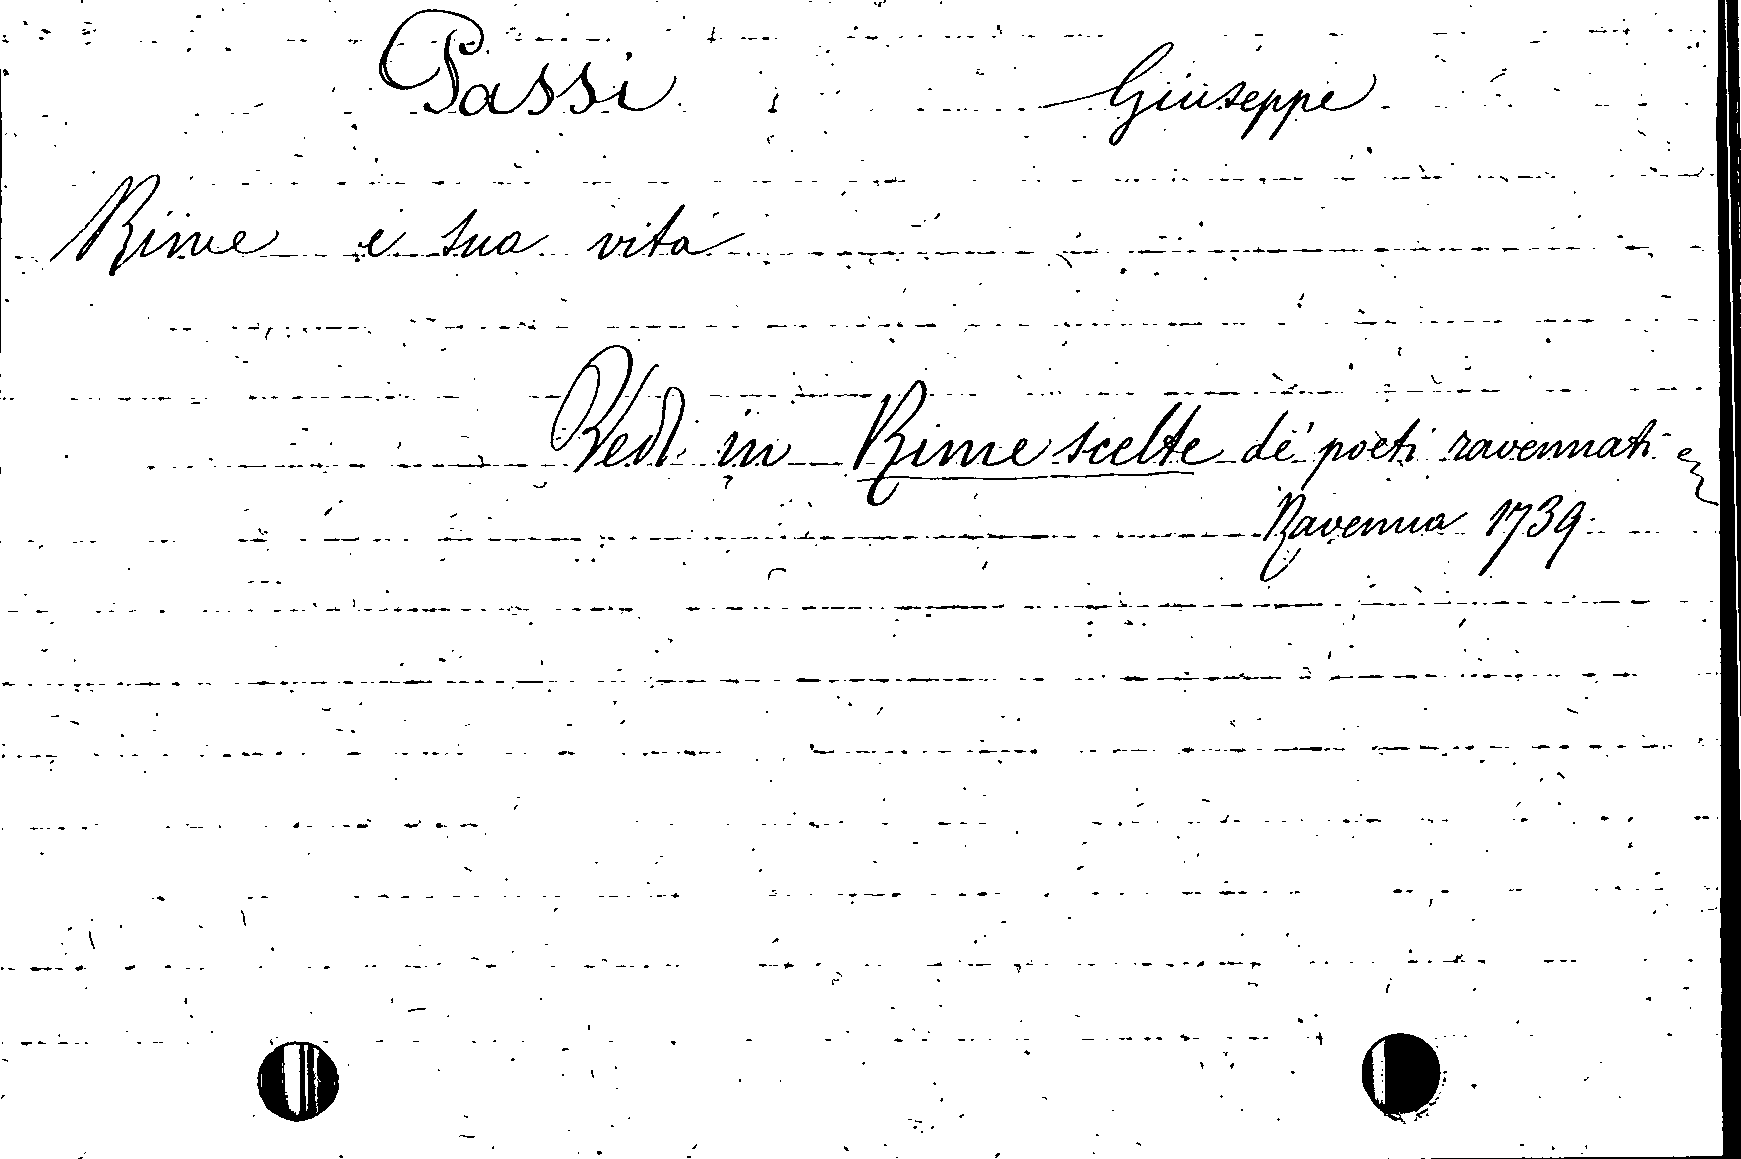 Passi Giuseppe
Rime e sua vita
Vedi in Rime scelte de' poeti ravennati
Ravenna 1739.